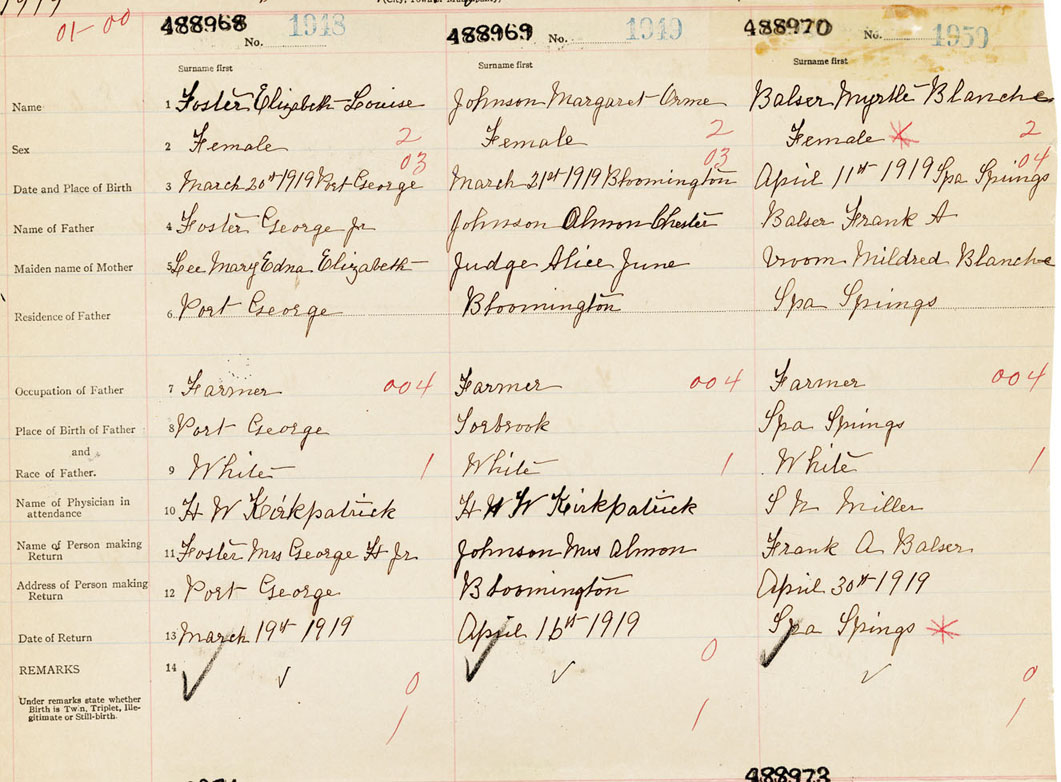 1919
(City, Town or Municipality)
01-00
488968 No. 1948
488969 No. 1949
488970 No. 1950
Surname first Surname first Surname first
Name 1 Foster Elizabeth Louise Johnson Margaret Orme Balser Myrtle Blanche
Sex 2 Female 2 Female 2 Female * 2
03 03 04
Date and Place of Birth 3 March 20th 1919 Port George March 21st 1919 Bloomington April 11th 1919 Spa Springs
Name of Father 4 Foster George Jr Johnson Almon Chester Balser Frank A
Maiden name of Mother 5 Lee Mary Edna Elizabeth Judge Alice June Vroom Mildred Blanche
Residence of Father 6 Port George Bloomington Spa Springs
Occupation of Father 7 Farmer 004 Farmer 004 Farmer 004
Place of Birth of Father 8 Port George Torbrook Spa Springs
and
Race of Father. 9 White 1 White 1 White 1
Name of Physician in attendance 10 H W Kirkpatrick H W Kirkpatrick S N Miller
Name of Person making Return 11 Foster Mrs George H Jr Johnson Mrs Almon Frank A Balser
Address of Person making Return 12 Port George Bloomington April 30th 1919
Date of Return 13 March 19th 1919 April 16th 1919 Spa Springs *
REMARKS 14 ✓ ✓ ✓
0 0 0
Under remarks state whether Birth is Twin, Triplet, Illegitimate or Still-birth.
1 1 1
488973